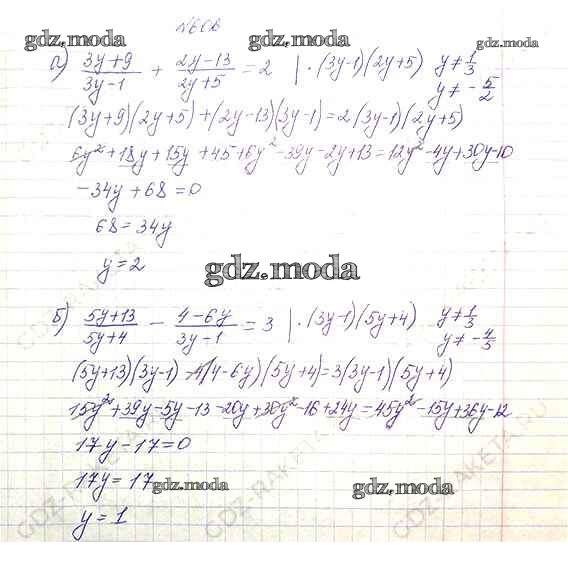 №602
gdz.moda gdz.moda gdz.moda
а) (3y+9)/(3y-1) + (2y-13)/(2y+5) = 2 | ·(3y-1)(2y+5) y≠1/3
y≠ -5/2
(3y+9)(2y+5)+(2y-13)(3y-1)=2(3y-1)(2y+5)
6y²+18y+15y+45+6y²-39y-2y+13=12y²-4y+30y-10
-34y+68=0
68=34y
y=2
gdz.moda
б) (5y+13)/(5y+4) - (4-6y)/(3y-1) = 3 | ·(3y-1)(5y+4) y≠1/3
y≠ -4/5
(5y+13)(3y-1) - (4-6y)(5y+4)=3(3y-1)(5y+4)
15y²+39y-5y-13-20y+30y²-16+24y=45y²-15y+36y-12
17y-17=0
17y=17
gdz.moda gdz.moda
y=1
GDZ-RAKETA.RU